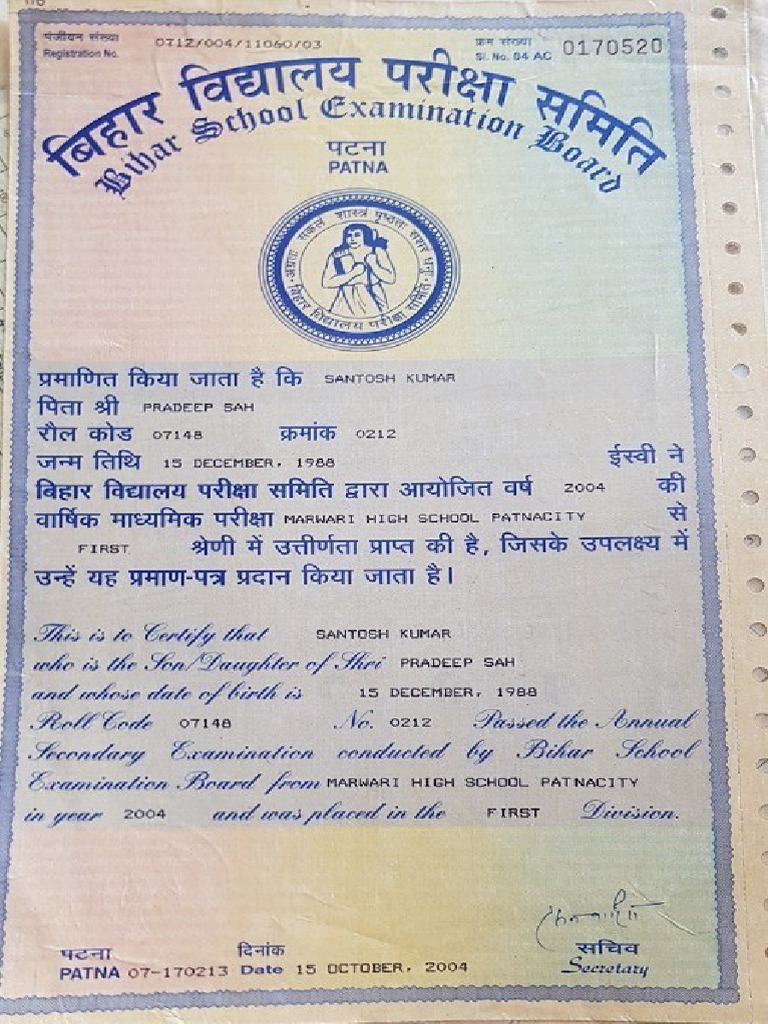 पंजीयन संख्या
Registration No. 0712/004/11060/03
क्रम संख्या
Sl. No. 04 AC 0170520
बिहार विद्यालय परीक्षा समिति
Bihar School Examination Board
पटना
PATNA
बिहार विद्यालय परीक्षा समिति
प्रमाणित किया जाता है कि SANTOSH KUMAR
पिता श्री PRADEEP SAH
रौल कोड 07148 क्रमांक 0212
जन्म तिथि 15 DECEMBER, 1988 ईस्वी ने
बिहार विद्यालय परीक्षा समिति द्वारा आयोजित वर्ष 2004 की
वार्षिक माध्यमिक परीक्षा MARWARI HIGH SCHOOL PATNACITY से
FIRST श्रेणी में उत्तीर्णता प्राप्त की है, जिसके उपलक्ष्य में
उन्हें यह प्रमाण-पत्र प्रदान किया जाता है।
This is to Certify that SANTOSH KUMAR
who is the Son/Daughter of Shri PRADEEP SAH
and whose date of birth is 15 DECEMBER, 1988
Roll Code 07148 No. 0212 Passed the Annual
Secondary Examination conducted by Bihar School
Examination Board from MARWARI HIGH SCHOOL PATNACITY
in year 2004 and was placed in the FIRST Division.
पटना दिनांक सचिव
PATNA 07-170213 Date 15 OCTOBER, 2004 Secretary